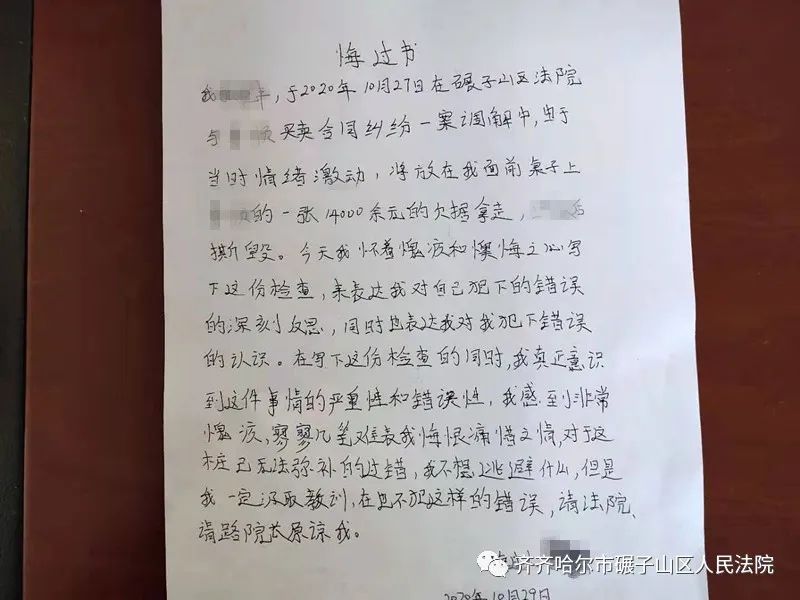 悔过书
我 年，于2020年10月27日在碾子山区法院
与 买卖合同纠纷一案调解中，由于
当时情绪激动，将放在我面前桌子上
的一张14000余元的欠据拿走，
撕毁。今天我怀着愧疚和懊悔之心写
下这份检查，来表达我对自己犯下的错误
的深刻反思，同时也表达我对我犯下错误
的认识。在写下这份检查的同时，我真正意识
到这件事情的严重性和错误性，我感到非常
愧疚，寥寥几笔难表我悔恨痛惜之情，对于这
桩已无法弥补的过错，我不想逃避什么，但是
我一定汲取教训，在也不犯这样的错误，请法院、
请路院长原谅我。
齐齐哈尔市碾子山区人民法院
2020年10月29日